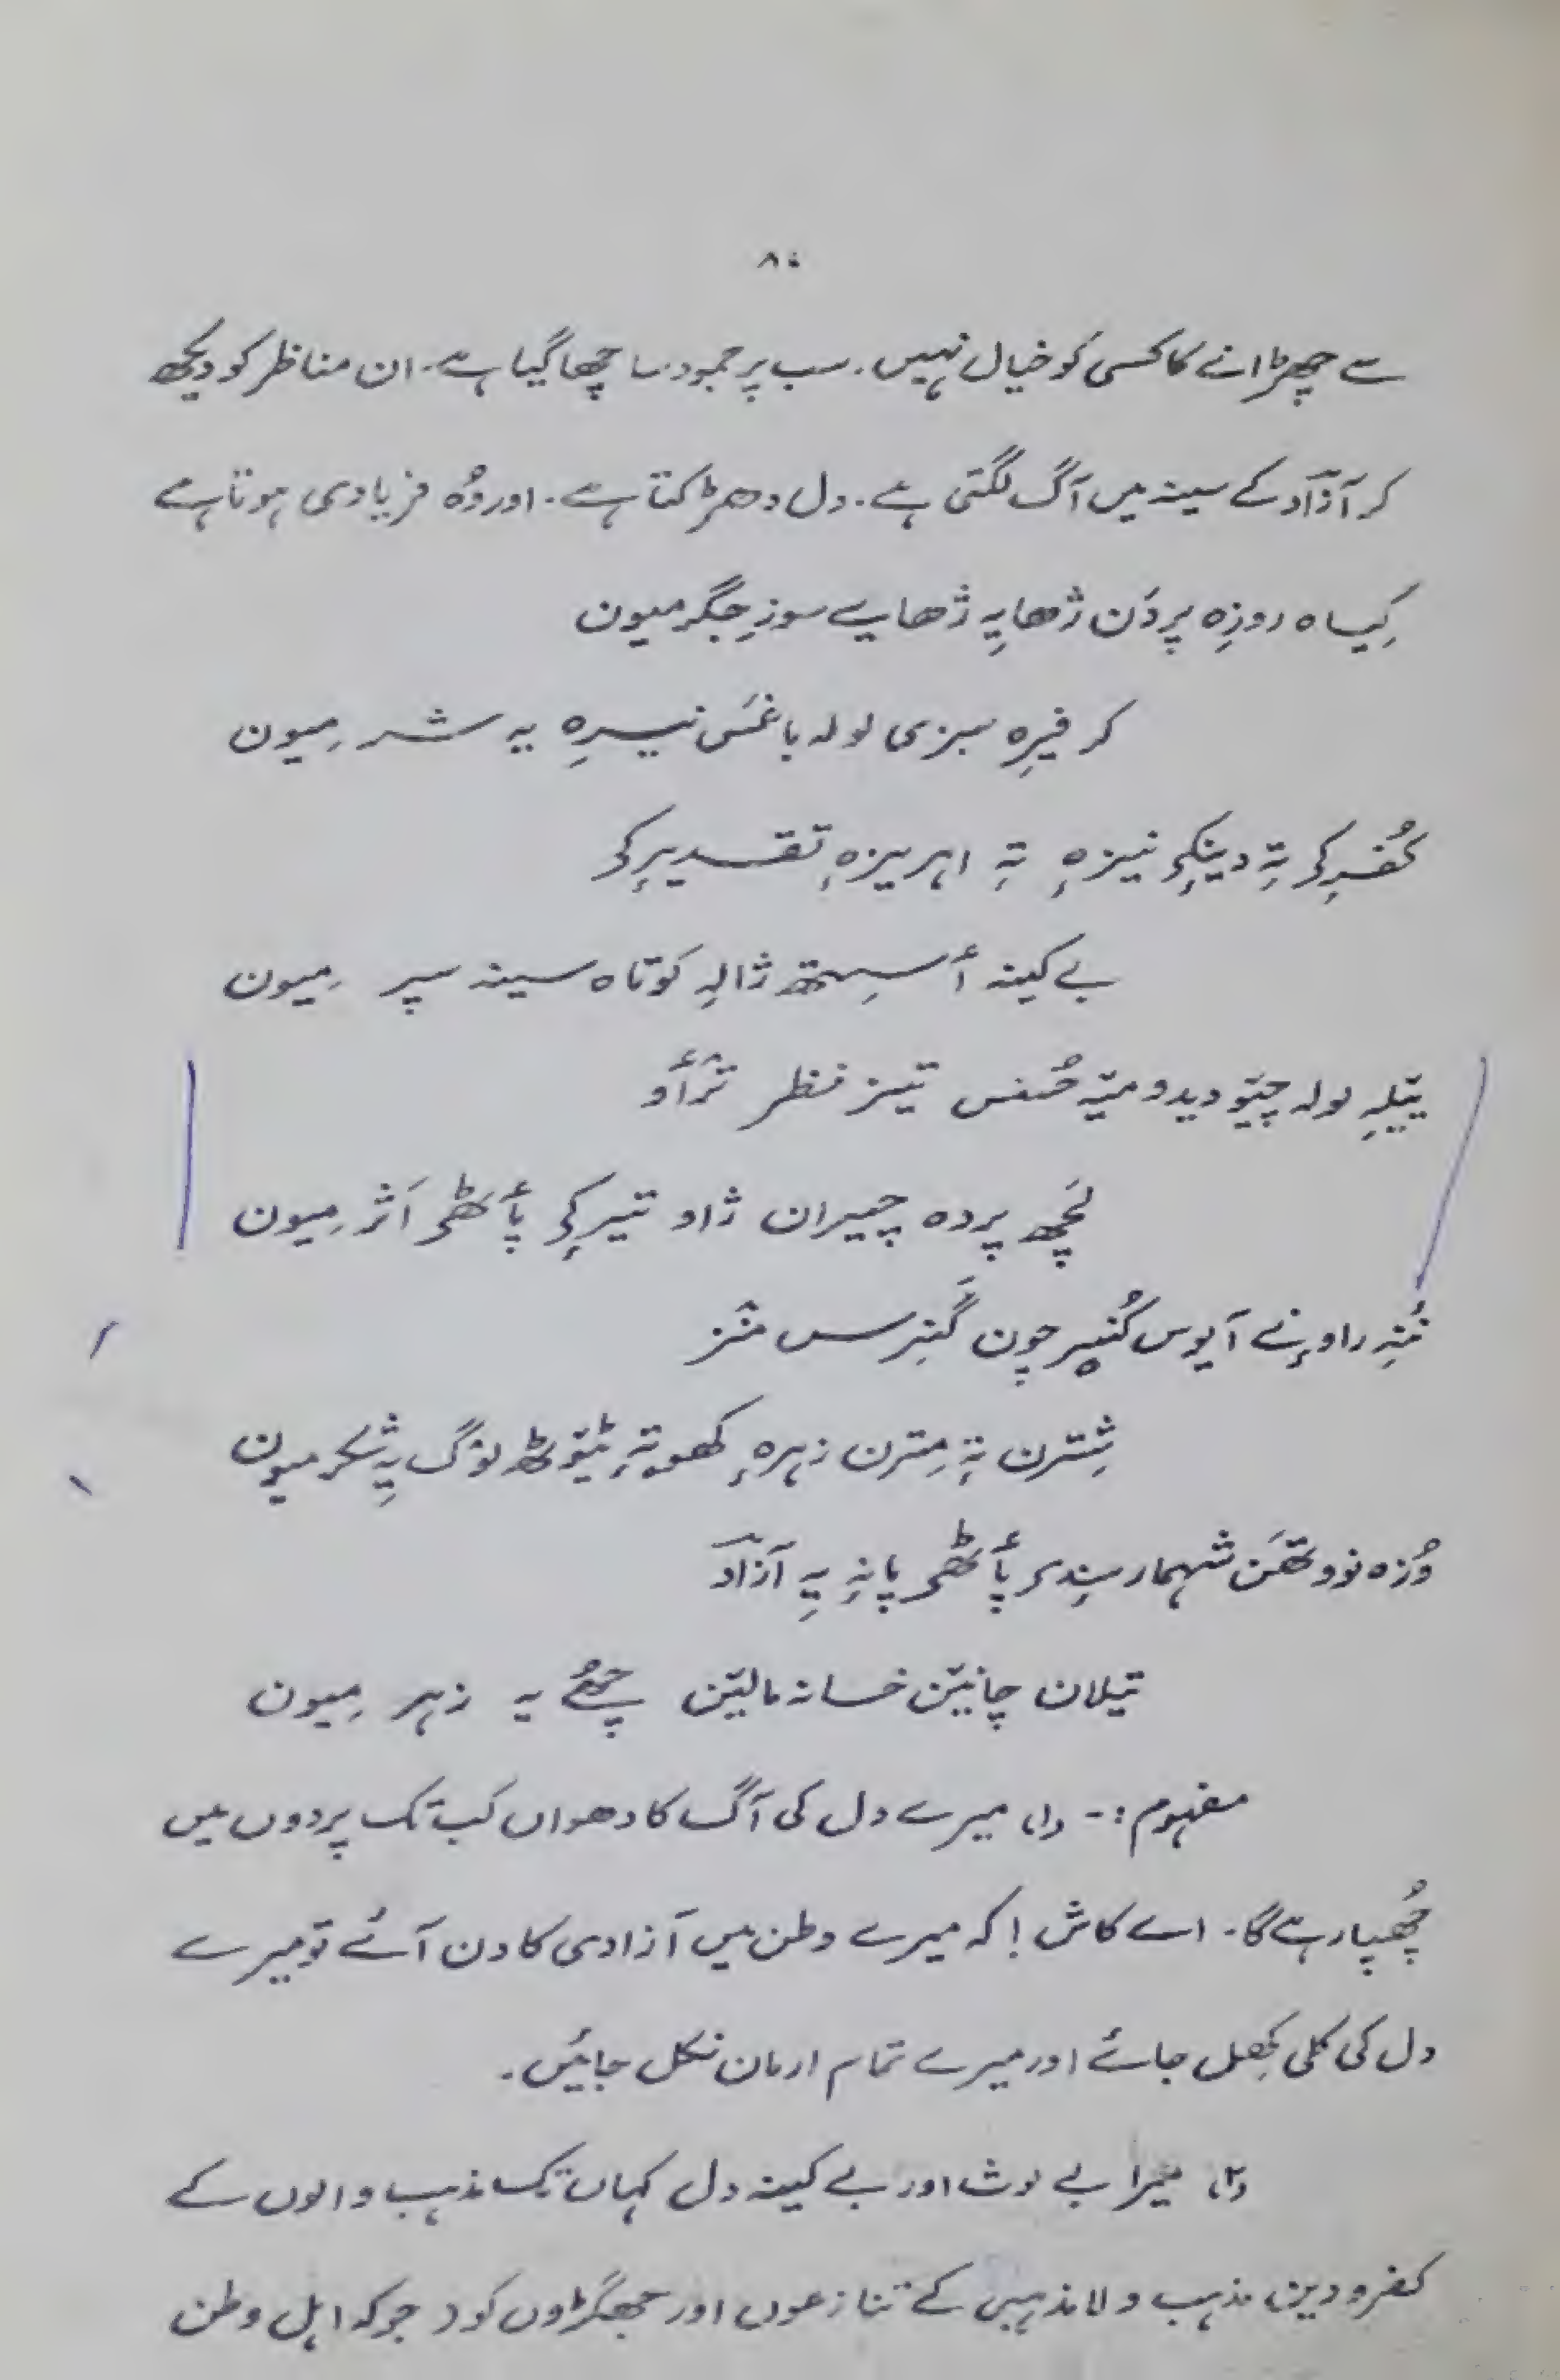 ۸۰
سے چھڑانے کا کسی کو خیال نہیں۔ سب پر جمود سا چھا گیا ہے۔ ان مناظر کو دیکھ
کر آزاد کے سینہ میں آگ لگتی ہے۔ دل دھڑکتا ہے۔ اور وُہ فریادی ہوتا ہے
کِیاہ روزِہ پردَن ژھایہِ ژھایے سوزِ جگر میون
کر فیرِہ سبزی لولہ باغَس نیرِہ یہ شر میون
کُفرِکی تہٕ دینٕکی نیزہٕ تہٕ اہریزہٕ تقدیرٕکی
بے کینہ أسِتھ ژالہِ کوتاہ سینہ سپر میون
ییٚلہِ لولہ چیٚو دیدو میٚہ حُسنس تیز نظر ترٛأو
لَچھ پردہ چیران ژاو تیرٕکی پأٹھی اَثر میون
نُنہٕ راونے آیوس کُنیر چون گَنٛزرس منٛز
شِترن تہٕ مِترن زہرہٕ کھوتہٕ ٹیوٚٹھ لوٚگ یہِ شکر میون
وُزہ نووتھَن شہمار سٕندی پأٹھی پانہٕ یہِ آزاد
تیلان چانیٚن خسانہ مالیٚن چھُے یہ زہر میون
مفہوم :- (۱) میرے دل کی آگ کا دھواں کب تک پردوں میں
چُھپا رہے گا۔ اے کاش! کہ میرے وطن میں آزادی کا دن آئے تو میرے
دل کی کلی کِھل جائے اور میرے تمام ارمان نکل جائیں۔
(۲) میرا بے لوث اور بے کینہ دل کہاں تک مذہب والوں کے
کفر و دین، مذہب و لا مذہبی کے تنازعوں اور جھگڑوں کو (جو کہ اہل وطن